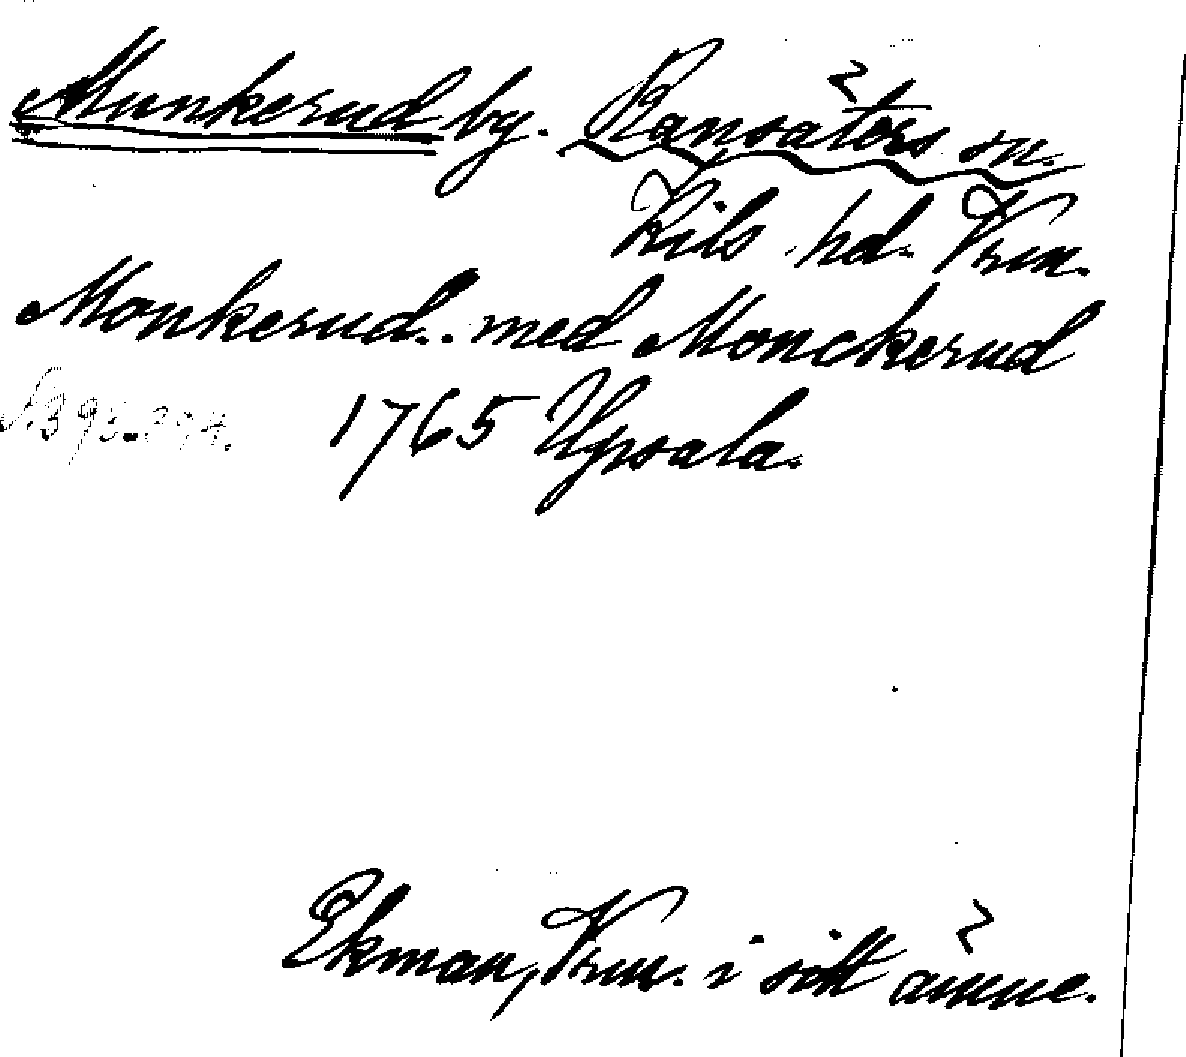 Munkerud by. Ransäters sn.
Kils hd. Vrm.
Monkerud.. med Monckerud
1765 Upsala.
Ekman, Vrm. i sitt ämne.